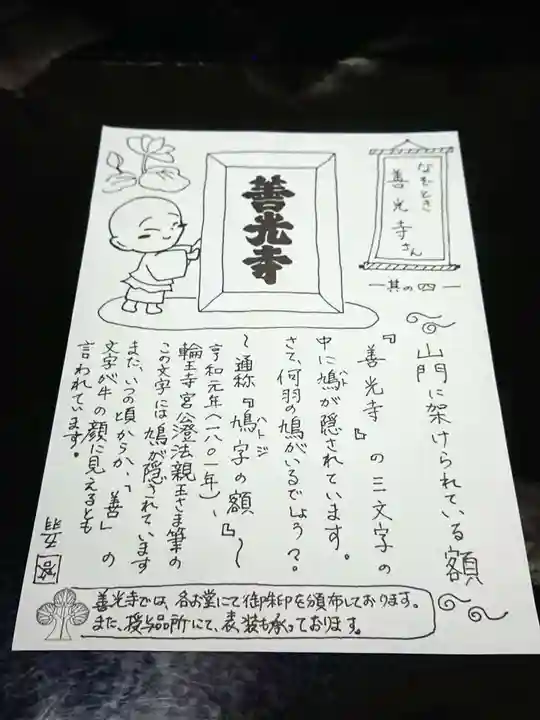 なぞとき
善光寺さん
其の四
山門に架けられている額
『善光寺』の三文字の
中に鳩が隠されています。
ハト
さて、何羽の鳩がいるでしょう?。
~通称『鳩字の額』~
ハトジ
亨和元年(一八〇一年)、
輪王寺宮公澄法親王さま筆の
この文字には鳩が隠されています
また、いつの頃からか、「善」の
文字が牛の顔に見えるとも
言われています。
善光寺
善光寺では、各お堂にて御朱印を頒布しております。
また、授与品所にて、表装も承っております。